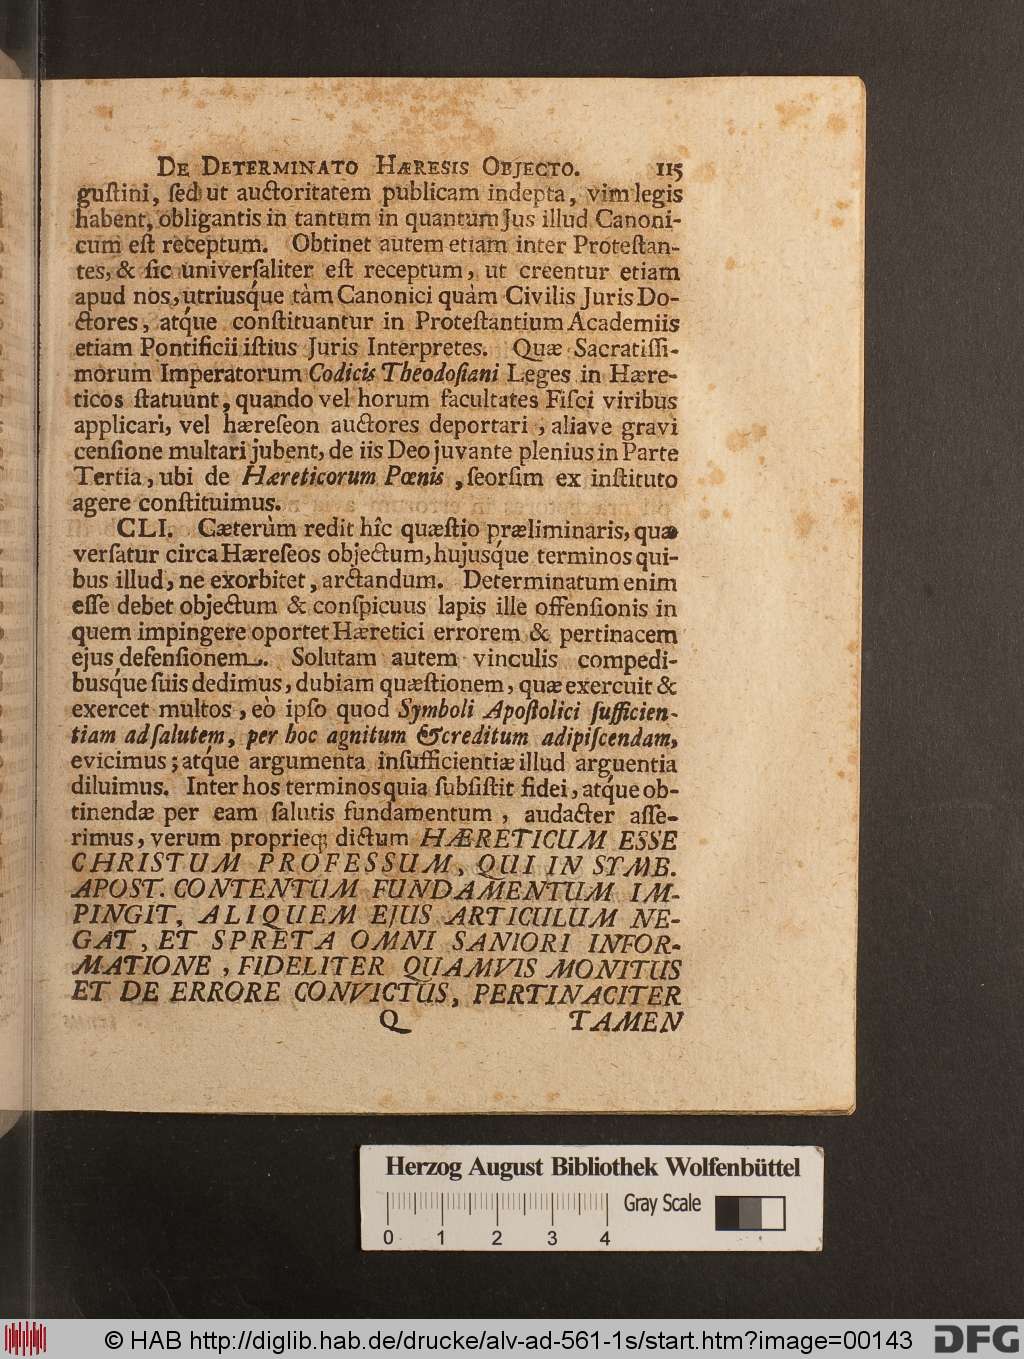 DE DETERMINATO HÆRESIS OBJECTO. 115
guſtini, ſed ut auctoritatem publicam indepta, vim legis
habent, obligantis in tantum in quantum Jus illud Canoni-
cum eſt receptum. Obtinet autem etiam inter Proteſtan-
tes, & ſic univerſaliter eſt receptum, ut creentur etiam
apud nos, utriusq́ue tàm Canonici quàm Civilis Juris Do-
ctores, atq́ue conſtituantur in Proteſtantium Academiis
etiam Pontificii iſtius Juris Interpretes. Quæ Sacratiſſi-
morum Imperatorum Codicis Theodoſiani Leges in Hære-
ticos ſtatuunt, quando vel horum facultates Fiſci viribus
applicari, vel hæreſeon auctores deportari, aliave gravi
cenſione multari jubent, de iis Deo juvante plenius in Parte
Tertia, ubi de Hæreticorum Pœnis, ſeorſim ex inſtituto
agere conſtituimus.
CLI. Cæterùm redit hîc quæſtio præliminaris, quæ
verſatur circa Hæreſeos objectum, hujusq́ue terminos qui-
bus illud, ne exorbitet, arctandum. Determinatum enim
eſſe debet objectum & conſpicuus lapis ille offenſionis in
quem impingere oportet Hæretici errorem & pertinacem
ejus defenſionem. Solutam autem vinculis compedi-
busq́ue ſuis dedimus, dubiam quæſtionem, quæ exercuit &
exercet multos, eò ipſo quod Symboli Apoſtolici ſufficien-
tiam ad ſalutem, per hoc agnitum & creditum adipiſcendam,
evicimus; atq́ue argumenta inſufficientiæ illud arguentia
diluimus. Inter hos terminos quia ſubſiſtit fidei, atq́ue ob-
tinendæ per eam ſalutis fundamentum, audacter aſſe-
rimus, verum proprieq; dictum HÆRETICUM ESSE
CHRISTUM PROFESSUM, QUI IN SYMB.
APOST. CONTENTUM FUNDAMENTUM IM-
PINGIT, ALIQUEM EJUS ARTICULUM NE-
GAT, ET SPRETA OMNI SANIORI INFOR-
MATIONE, FIDELITER QUAMVIS MONITUS
ET DE ERRORE CONVICTUS, PERTINACITER
Q TAMEN
Herzog August Bibliothek Wolfenbüttel
Gray Scale
0 1 2 3 4
© HAB http://diglib.hab.de/drucke/alv-ad-561-1s/start.htm?image=00143 DFG